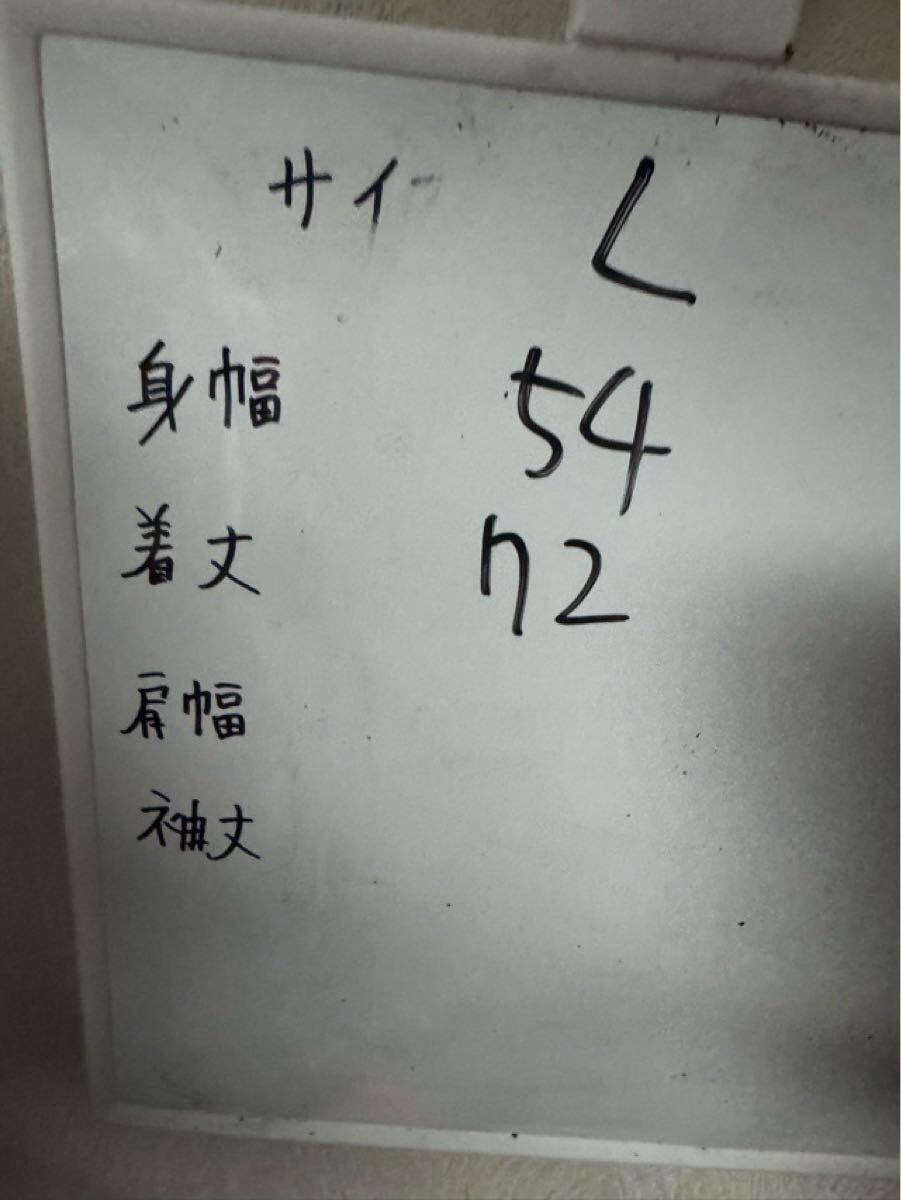 サイ L
身幅 54
着丈 72
肩幅
袖丈